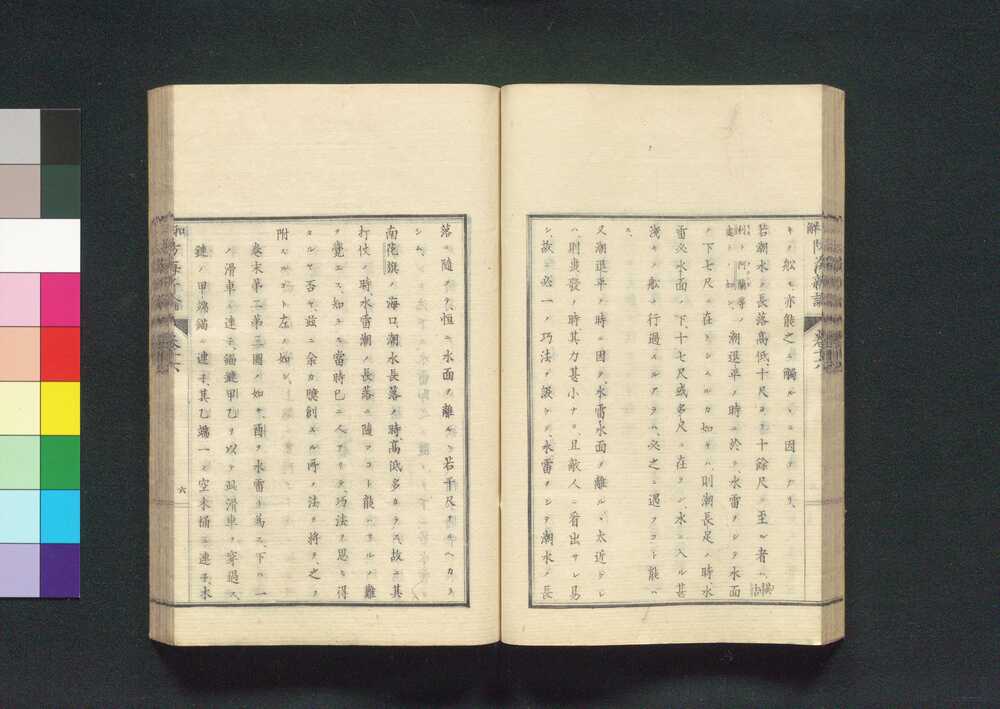 解防海新論 卷十六
キノ舩モ亦能之ニ觸ルヽニ因テナリ、
若潮水ノ長落高低、十尺ヨリ十餘尺ニ至ル者ハ
潮退準ノ時ニ於テ、水雷ヲシテ水面
ノ下七尺ニ在ラシムルカ如キハ、則潮長足ノ時、水
雷必水面ノ下、十七尺或多尺ニ在ラン、水ニ入ル甚
淺キノ舩ハ行過スルアラハ必之ニ遇フコト能ハ
ス、
又潮退準ノ時ニ因テ水雷水面ヲ離ルヽ太近トシ
ハ、則轟發ノ時其力甚小ナリ、且敵人ニ看出サレ易
シ、故ニ必一ノ巧法ヲ設ケ、水雷ヲシテ潮水ノ長
落ニ随テ、恒ニ水面ヲ離ルヽ若干尺ナルヘカラ
シム、
南花旗ノ海口、潮水長落ノ時、高低多カラス、故ニ其
打仗ノ時、水雷潮ノ長落ニ随フコト能ハサルノ難
ヲ覺エス、知ラス當時已ニ人アリテ巧法ヲ思ヒ得
タルヤ否ヤ、茲ニ余カ曉創スル所ノ法ヲ將テ、之ヲ
附スルコト左ノ如シ、
卷末第二第三圖ノ如キ、酉ヲ水雷ト為ス、下ニ一
ノ滑車ヲ連子、錨鏈甲乙ヲ以テ此滑車ヲ穿過ス、
鏈ノ甲端錨ニ連子、其乙端一ノ空木桶ニ連子、木
六